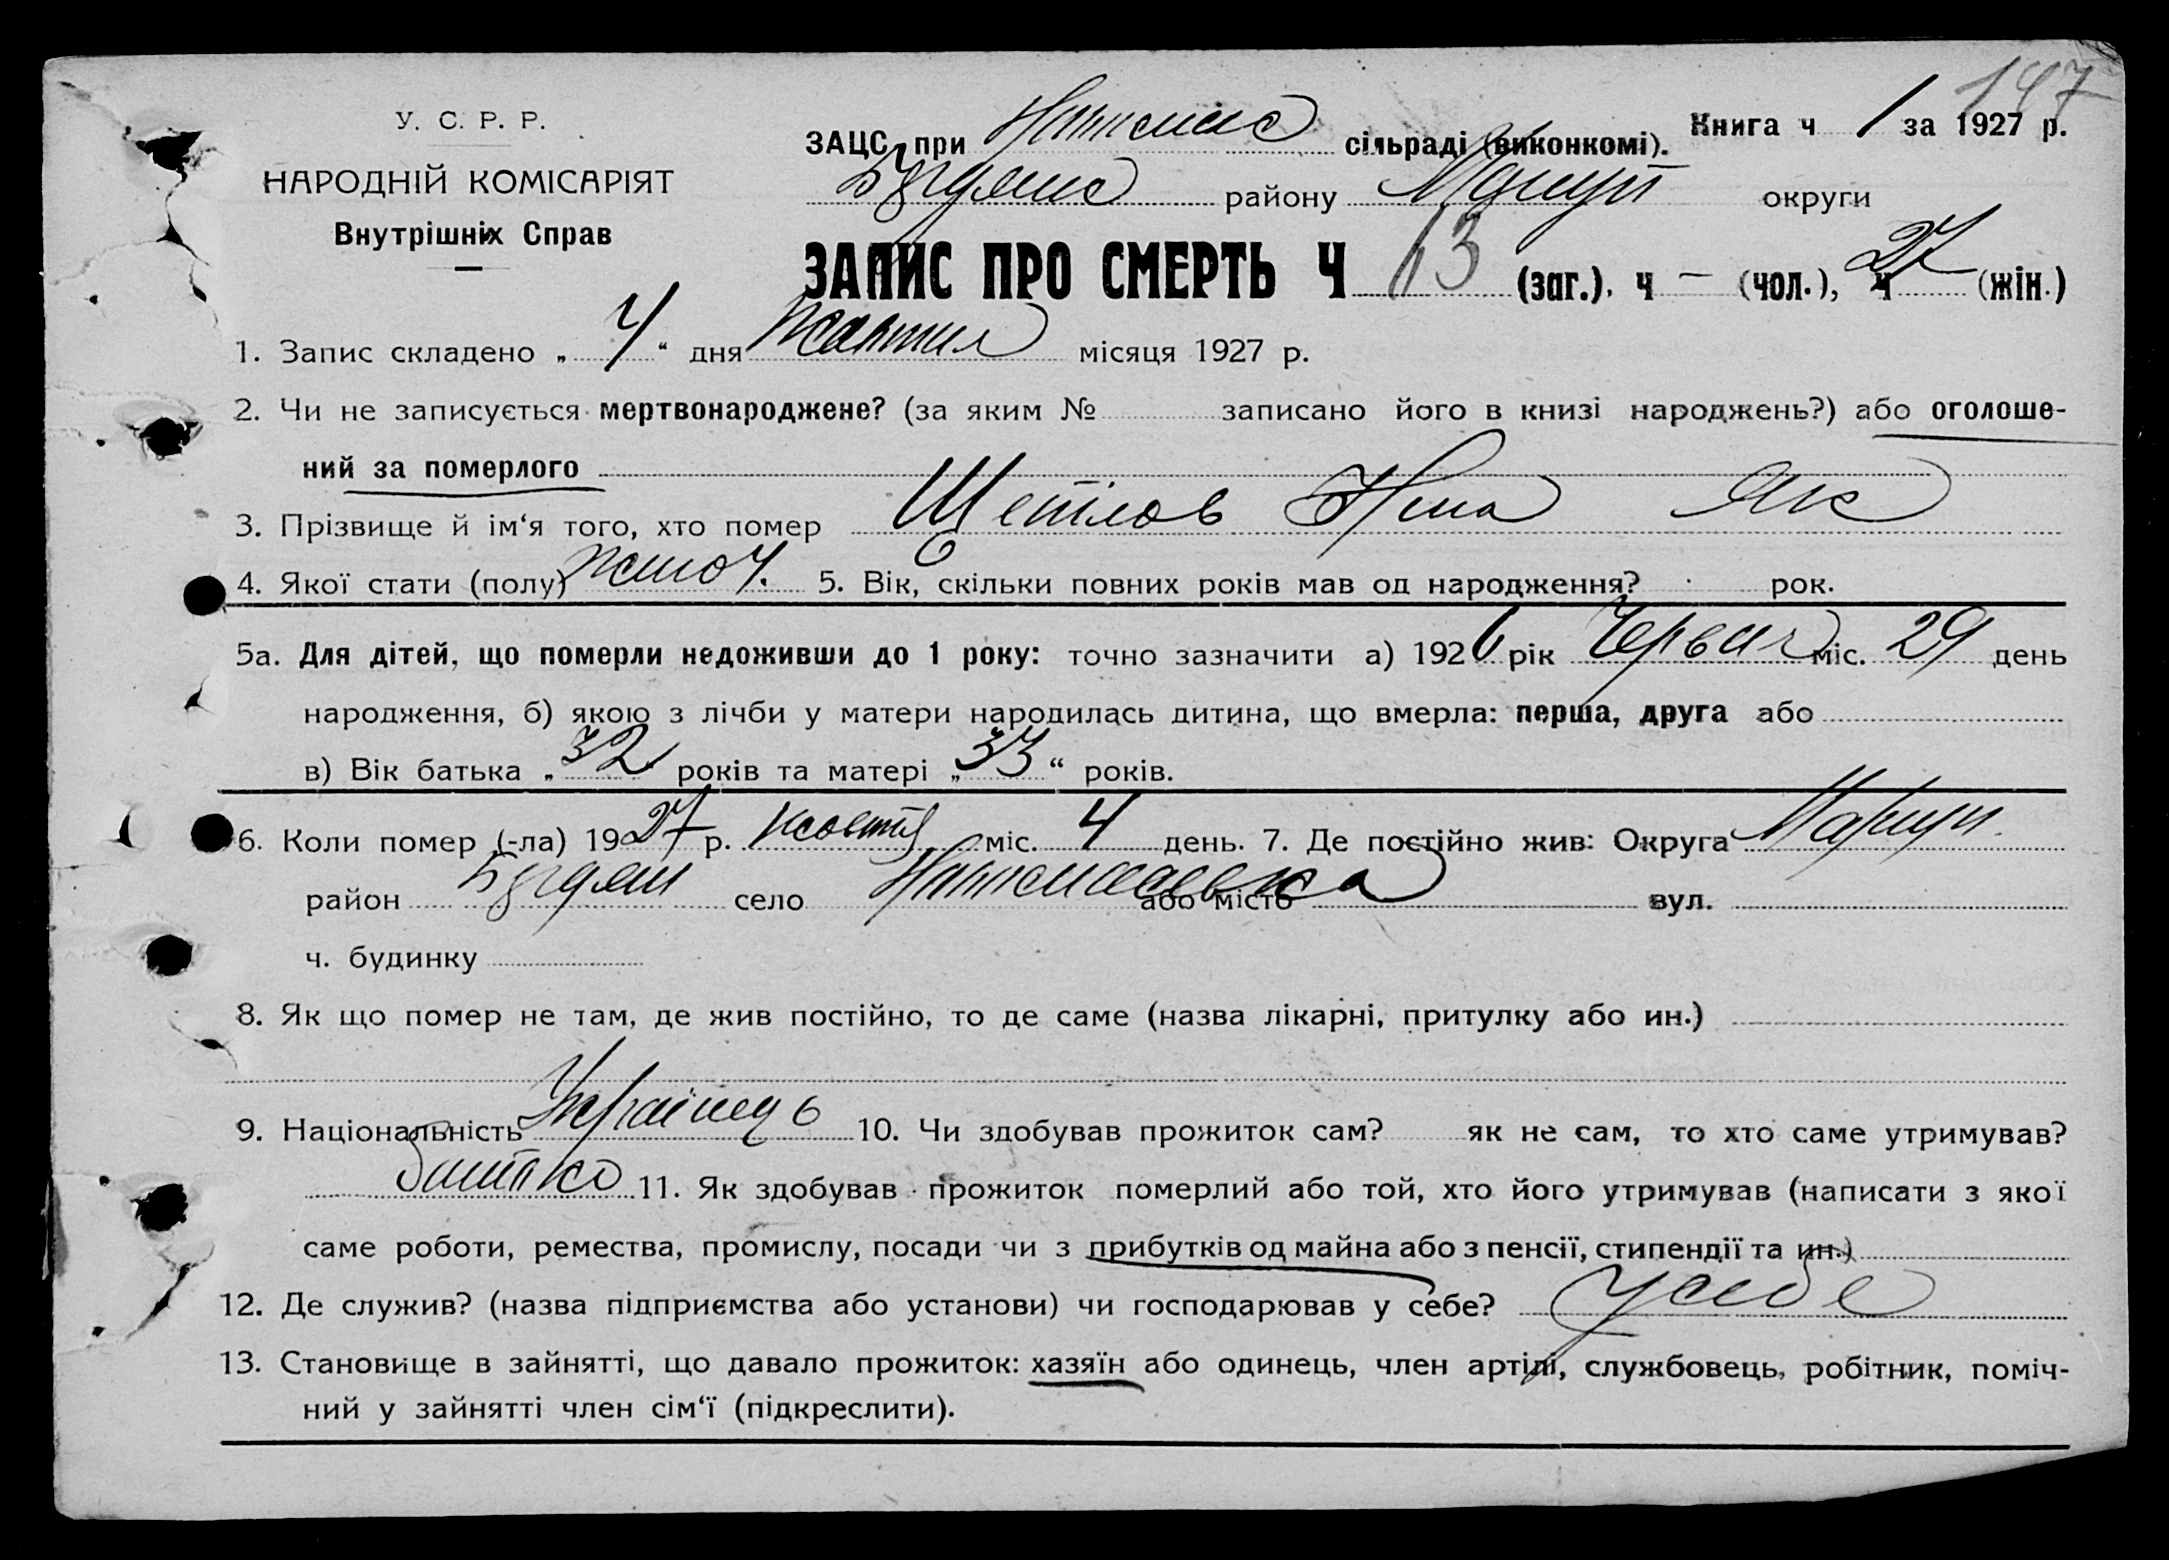 147
У. С. Р. Р.
НАРОДНІЙ КОМІСАРІЯТ
Внутрішніх Справ
Книга ч 1 за 1927 р.
ЗАЦС при сільраді (виконкомі).
району округи
ЗАПИС ПРО СМЕРТЬ Ч 63 (заг.), ч — (чол.), ч 27 (жін.)
1. Запис складено „ 4 “ дня місяця 1927 р.
2. Чи не записується мертвонароджене? (за яким № записано його в книзі народжень?) або оголоше-
ний за померлого
3. Прізвище й ім‘я того, хто помер Щетілов Ніна Як
4. Якої стати (полу) жіноч. 5. Вік, скільки повних років мав од народження? рок.
5а. Для дітей, що померли недоживши до 1 року: точно зазначити а) 1926 рік Червня міс. 29 день
народження, б) якою з лічби у матери народилась дитина, що вмерла: перша, друга або
в) Вік батька „ 32 “ років та матері „ 33 “ років.
6. Коли помер (-ла) 1927 р. жовтня міс. 4 день. 7. Де постійно жив: Округа Маріуп.
район село або місто вул.
ч. будинку
8. Як що помер не там, де жив постійно, то де саме (назва лікарні, притулку або ин.)
9. Національність Українець 10. Чи здобував прожиток сам? як не сам, то хто саме утримував?
батько 11. Як здобував прожиток померлий або той, хто його утримував (написати з якої
саме роботи, ремества, промислу, посади чи з прибутків од майна або з пенсії, стипендії та ин.)
12. Де служив? (назва підприємства або установи) чи господарював у себе? у себе
13. Становище в зайнятті, що давало прожиток: хазяїн або одинець, член артілі, службовець, робітник, поміч-
ний у зайнятті член сім‘ї (підкреслити).